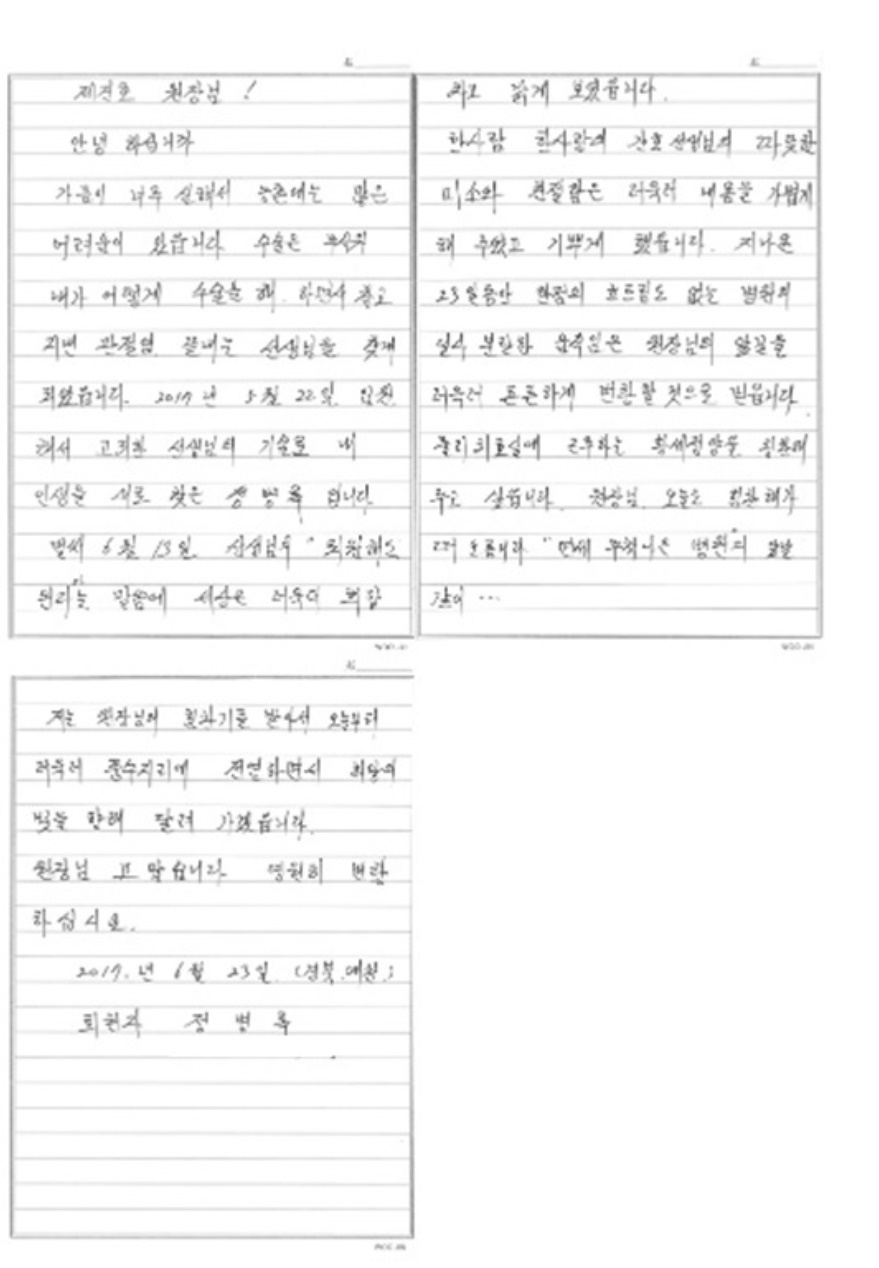 원장님 !
안녕 하십니까
가뭄이 너무 심해서 농촌에는 많은
어려움이 있읍니다 수술은 무슨
내가 어떻게 수술을 해. 하면서
관절염 끝내는 선생님을 찾게
되었읍니다. 2017 년 5월 22일 입원
해서 고귀한 선생님의 기술로 내
인생을 새로 찾은 정병록 입니다
벌써 6월 13일 선생님의 " 퇴원해도
된다"는 말씀에 세상은 더욱더
밝게 보였읍니다.
한사람 한사람의 간호 선생님의 따뜻한
미소와 친절함은 더욱더 내 몸을 가볍게
해 주었고 기쁘게 했읍니다. 지나온
23일동안 한점의 흐트림도 없는 병원의
움직임은 원장님의 앞길을
더욱더 튼튼하게 번창할 것으로 믿읍니다
물리치료실에 근무하는 칭찬해
주고 싶습니다. 원장님 오늘도
병원의
같이 ...
저는 원장님의 받아서 오늘부터
더욱더 풍수지리에 전념하면서 희망의
빛을 향해 달려 가겠읍니다.
원장님 고맙습니다 영원히 번창
하십시요.
2017. 년 6월 23일. (경북.예천)
퇴원자 정 병 록